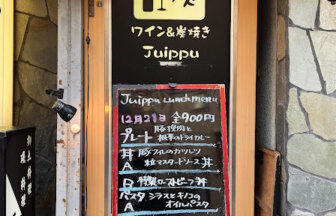 ワイン&炭焼き
Juippu
Juippu Lunch menu
12月21日 全900円
プレート 豚挽肉と
根菜のドライカレー
丼A 豚フィレのカツレツ
粒マスタードソース丼
丼B 特製ローストビーフ丼
パスタA シラスとキノコの
オイルパスタ
郷土料理
磯料理